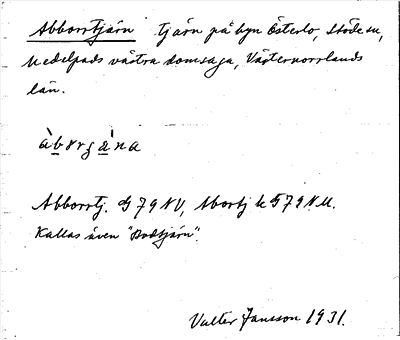 Abborrtjärn tjärn på byn Österlo, Stöde sn,
Medelpads västra domsaga, Västernorrlands
län.
àbʊrgána
Abborrtj. G 79 NV, Abortj k G 79 NU.
Kallas även "Bodtjärn".
Valter Jansson 1931.